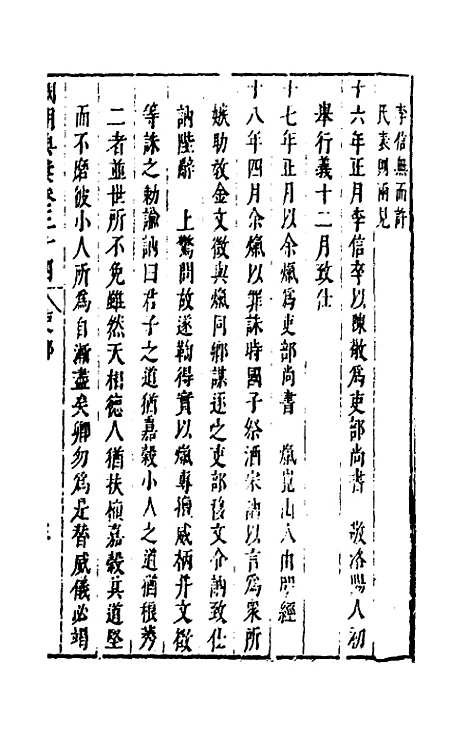 李信無而許
氏表則兩見
十六年正月李信卒以陳敬為吏部尚書　敬洛陽人初
舉行義十二月致仕
十七年正月以余熂為吏部尚書　熂崑山人由明經
十八年四月余熂以罪誅時國子祭酒宋訥以言為眾所
嫉助教金文徵與熂同鄉謀逐之吏部移文令訥致仕
訥陛辭　上驚問故遂鞫得實以熂專擅威柄并文徵
等誅之勅諭訥曰君子之道猶嘉穀小人之道猶稂莠
二者並世所不免雖然天相德人猶扶植嘉穀其道堅
而不磨彼小人所為自漸盡矣卿勿為是替威儀必竭
國朝典彙卷三十四　吏部